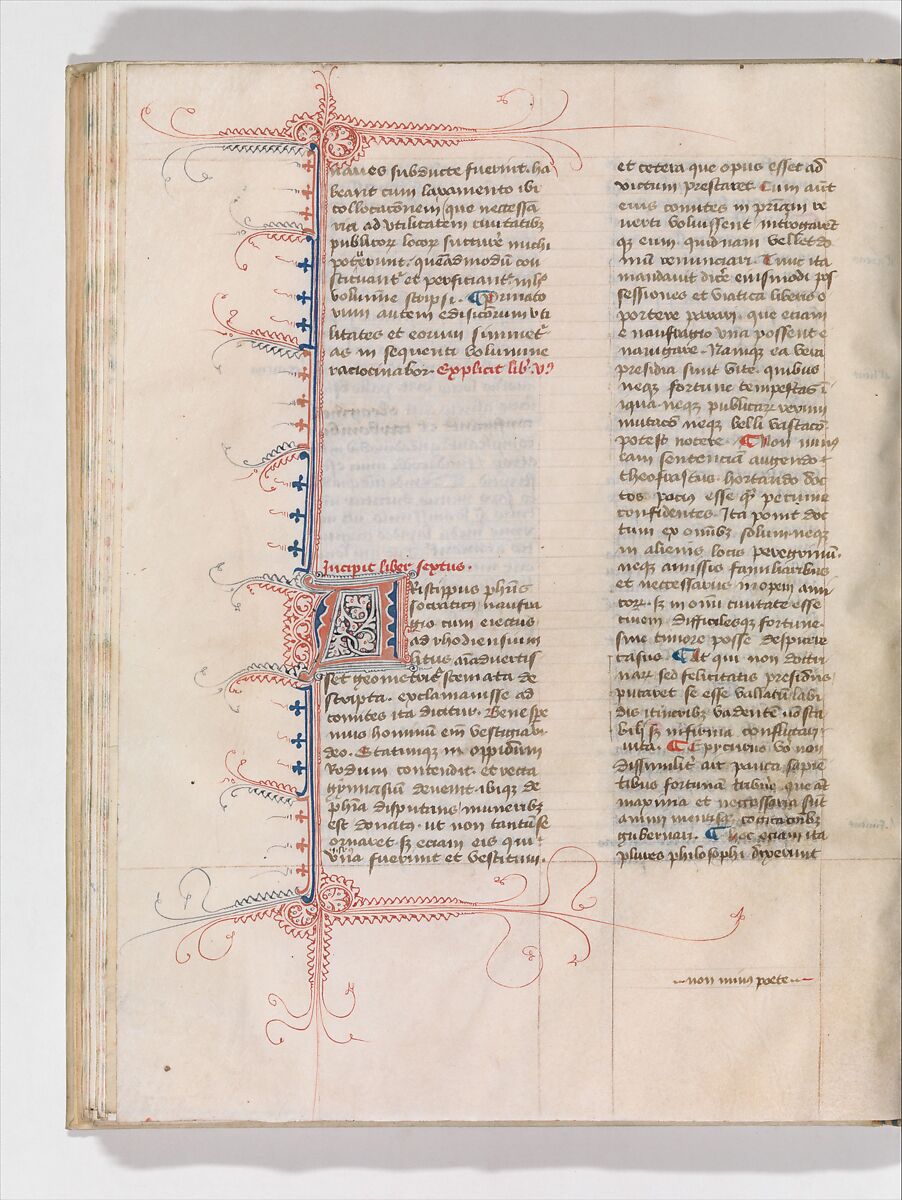 naues subducte fuerint. ha
beant cum lauamento ibi
collocacōnem que necessa
ria ad utilitatem ciuitatibꝫ
publicorꝝ locorꝝ succurrere michi
poterunt. queadmodū con
stituant̄ et perficiant̄ in hͦ
volumine scripsi. Priuato
rum autem edificiorum uti
litates et eorum simmetͥ
as in sequenti volumine
raciocinabor. Explicit lib̄. vꝰ
Incipit liber sextus.
Aristippus ph̄us
socraticus naufra
gio cum eiectus
ad rhodiensium
litus aīaduertis
set geometrica scemata de
scripta. exclamauisse ad
comites ita dicitur. Bene spe
mus hominum em̄ vestigia vi
deo. Statimqꝫ in oppidum
Rodum contendit. et recta
gymnasium deuenit ibiqꝫ de
ph̄ia disputans muneribꝫ
est donatꝰ. ut non tantū se
ornaret sꝫ eciam eis qui
vna fuerunt et vestitum.
et cetera que opus esset ad
victum prestaret. Cum aūt
eius comites in patriam re
uerti voluissent interogarent
qꝫ eum. quid nam vellet do
mū renunciari. Tunc ita
mandauit dicere eiusmodi pos
sessiones et viatica liberis o
portere parari. que eciam
e naufragio vna possent e
nauigare. Namqꝫ ea vera
presidia sunt vite. quibus
neqꝫ fortune tempestas ī
iqua. neqꝫ publicarꝝ rerum
mutacō neqꝫ belli vastacō
potest nocere. Non minꝰ
eam sentenciā augendo
theofrastus. hortando doc
tos pocius esse qꝫ pecunie
confidentes. Ita ponit doc
tum ex omībꝫ solum. neqꝫ
in alienis locis peregrinū.
neqꝫ amissis familiaribus
et neccessariis inopem ami
corꝝ. sꝫ in omni ciuitate esse
ciuem difficilesqꝫ fortune
sine timore posse despicere
casus. At qui non doctri
narꝝ sed felicitatis presidiis
putaret se esse vallatū labi
dis itineribꝫ vadentē nō sta
bili sꝫ infirma conflictari
vita. Epycurus vͦ non
dissimiliter ait pauca sapiē
tibus fortunā tribuere. que aūt
maxima et neccessaria sūt
animi mentisqꝫ cogitacōibꝫ
gubernari. Hoc eciam ita
plures philosophi dixerunt
non minꝰ poete